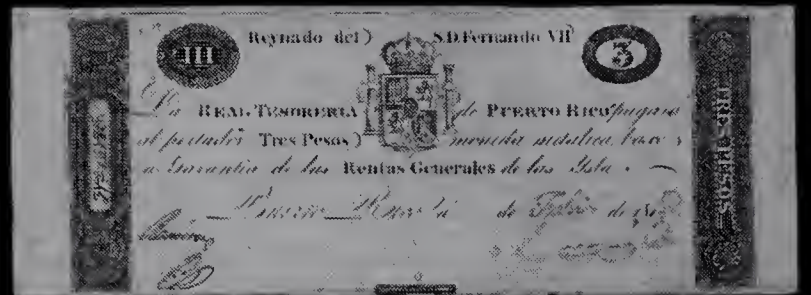 III Reynado del S.D. Fernando VII 3
La REAL TESORERIA de PUERTO RICO pagara
al portador Tres Pesos moneda metalica, baxo
la Garantia de las Rentas Generales de las Isla
Puerto Rico de de
TRES PESOS